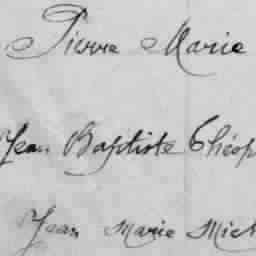 Pierre Marie
Jean Baptiste Théop
Jean Marie Mich